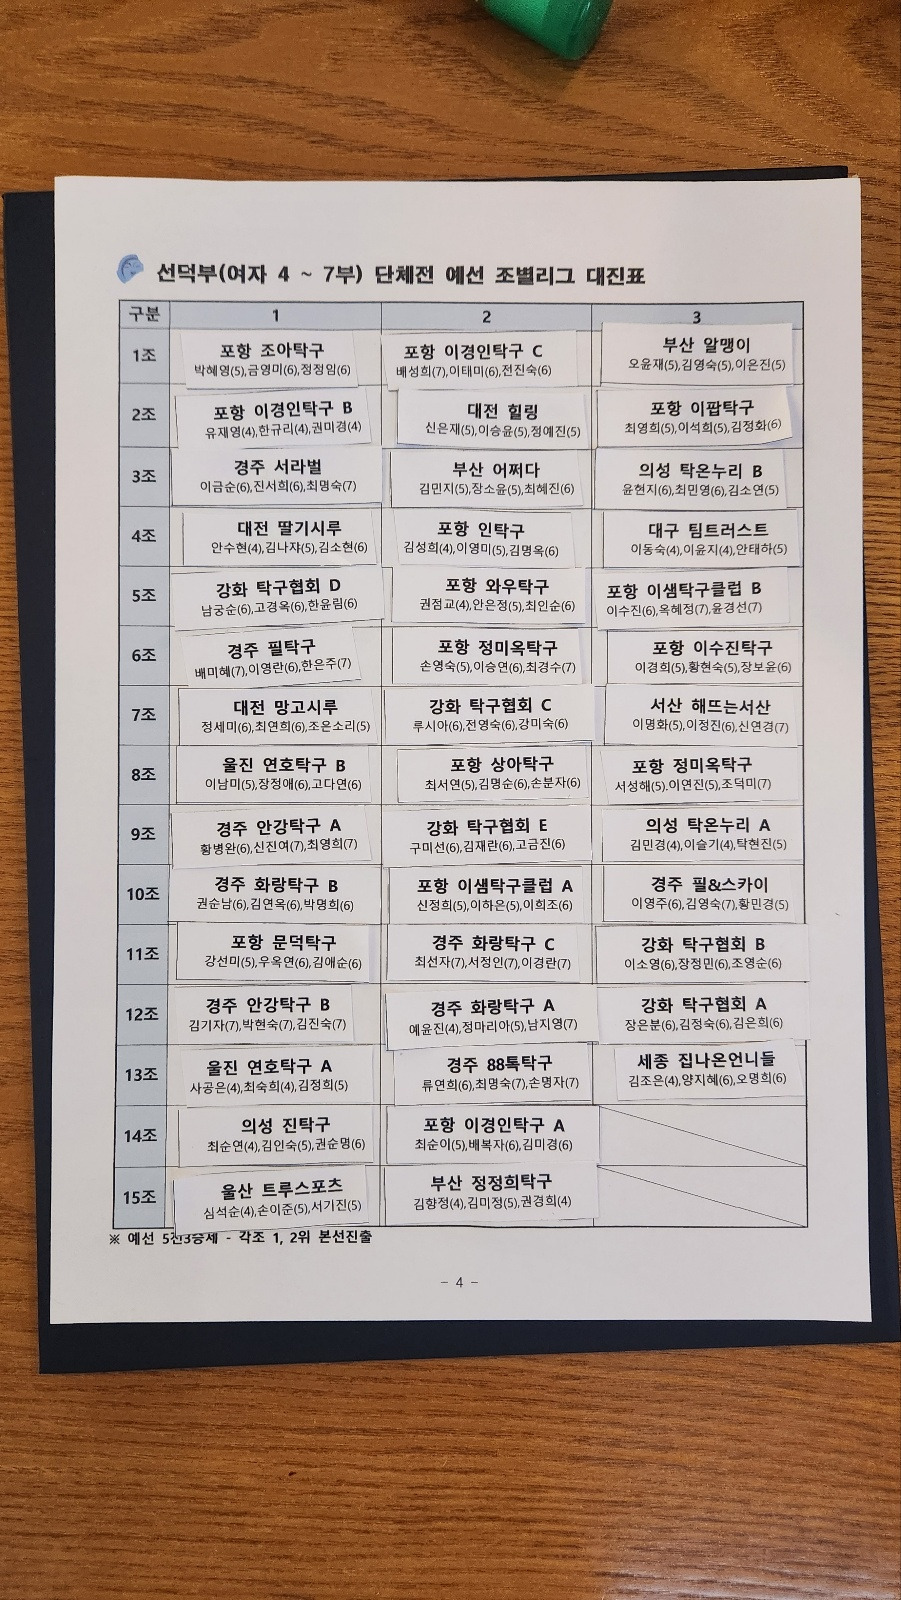 선덕부(여자 4 ~ 7부) 단체전 예선 조별리그 대진표
구분 1 2 3
1조
포항 조아탁구
박혜영(5),금영미(6),정정임(6)
포항 이경인탁구 C
배성희(7),이태미(6),전진숙(6)
부산 알맹이
오윤재(5),김영숙(5),이은진(5)
2조
포항 이경인탁구 B
유재영(4),한규리(4),권미경(4)
대전 힐링
신은재(5),이승윤(5),정예진(5)
포항 이팝탁구
최영희(5),이석희(5),김정화(6)
3조
경주 서라벌
이금순(6),진서희(6),최명숙(7)
부산 어쩌다
김민지(5),장소윤(5),최혜진(6)
의성 탁온누리 B
윤현지(6),최민영(6),김소연(5)
4조
대전 딸기시루
안수현(4),김나쟈(5),김소현(6)
포항 인탁구
김성희(4),이영미(5),김명옥(6)
대구 팀트러스트
이동숙(4),이윤지(4),안태하(5)
5조
강화 탁구협회 D
남궁순(6),고경옥(6),한윤림(6)
포항 와우탁구
권점교(4),안은정(5),최인순(6)
포항 이샘탁구클럽 B
이수진(6),옥혜정(7),윤경선(7)
6조
경주 필탁구
배미혜(7),이영란(6),한은주(7)
포항 정미옥탁구
손영숙(5),이승연(6),최경수(7)
포항 이수진탁구
이경희(5),황현숙(5),장보윤(6)
7조
대전 망고시루
정세미(6),최연희(6),조은소리(5)
강화 탁구협회 C
루시아(6),전영숙(6),강미숙(6)
서산 해뜨는서산
이명화(5),이정진(6),신연경(7)
8조
울진 연호탁구 B
이남미(5),장정애(6),고다연(6)
포항 상아탁구
최서연(5),김명순(6),손분자(6)
포항 정미옥탁구
서성해(5),이연진(5),조덕미(7)
9조
경주 안강탁구 A
황병완(6),신진여(7),최영희(7)
강화 탁구협회 E
구미선(6),김재란(6),고금진(6)
의성 탁온누리 A
김민경(4),이슬기(4),탁현진(5)
10조
경주 화랑탁구 B
권순남(6),김연옥(6),박명희(6)
포항 이샘탁구클럽 A
신정희(5),이하은(5),이희조(6)
경주 필&스카이
이영주(6),김영숙(7),황민경(5)
11조
포항 문덕탁구
강선미(5),우옥연(6),김애순(6)
경주 화랑탁구 C
최선자(7),서정인(7),이경란(7)
강화 탁구협회 B
이소영(6),장정민(6),조영순(6)
12조
경주 안강탁구 B
김기자(7),박현숙(7),김진숙(7)
경주 화랑탁구 A
예윤진(4),정마리아(5),남지영(7)
강화 탁구협회 A
장은분(6),김정숙(6),김은희(6)
13조
울진 연호탁구 A
사공은(4),최숙희(4),김정희(5)
경주 88톡탁구
류연희(6),최명숙(7),손명자(7)
세종 집나온언니들
김조은(4),양지혜(6),오명희(6)
14조
의성 진탁구
최순연(4),김인숙(5),권순명(6)
포항 이경인탁구 A
최순이(5),배복자(6),김미경(6)
15조
울산 트루스포츠
심석순(4),손이준(5),서기진(5)
부산 정정희탁구
김향정(4),김미정(5),권경희(4)
※ 예선 5전3승제 - 각조 1, 2위 본선진출
- 4 -